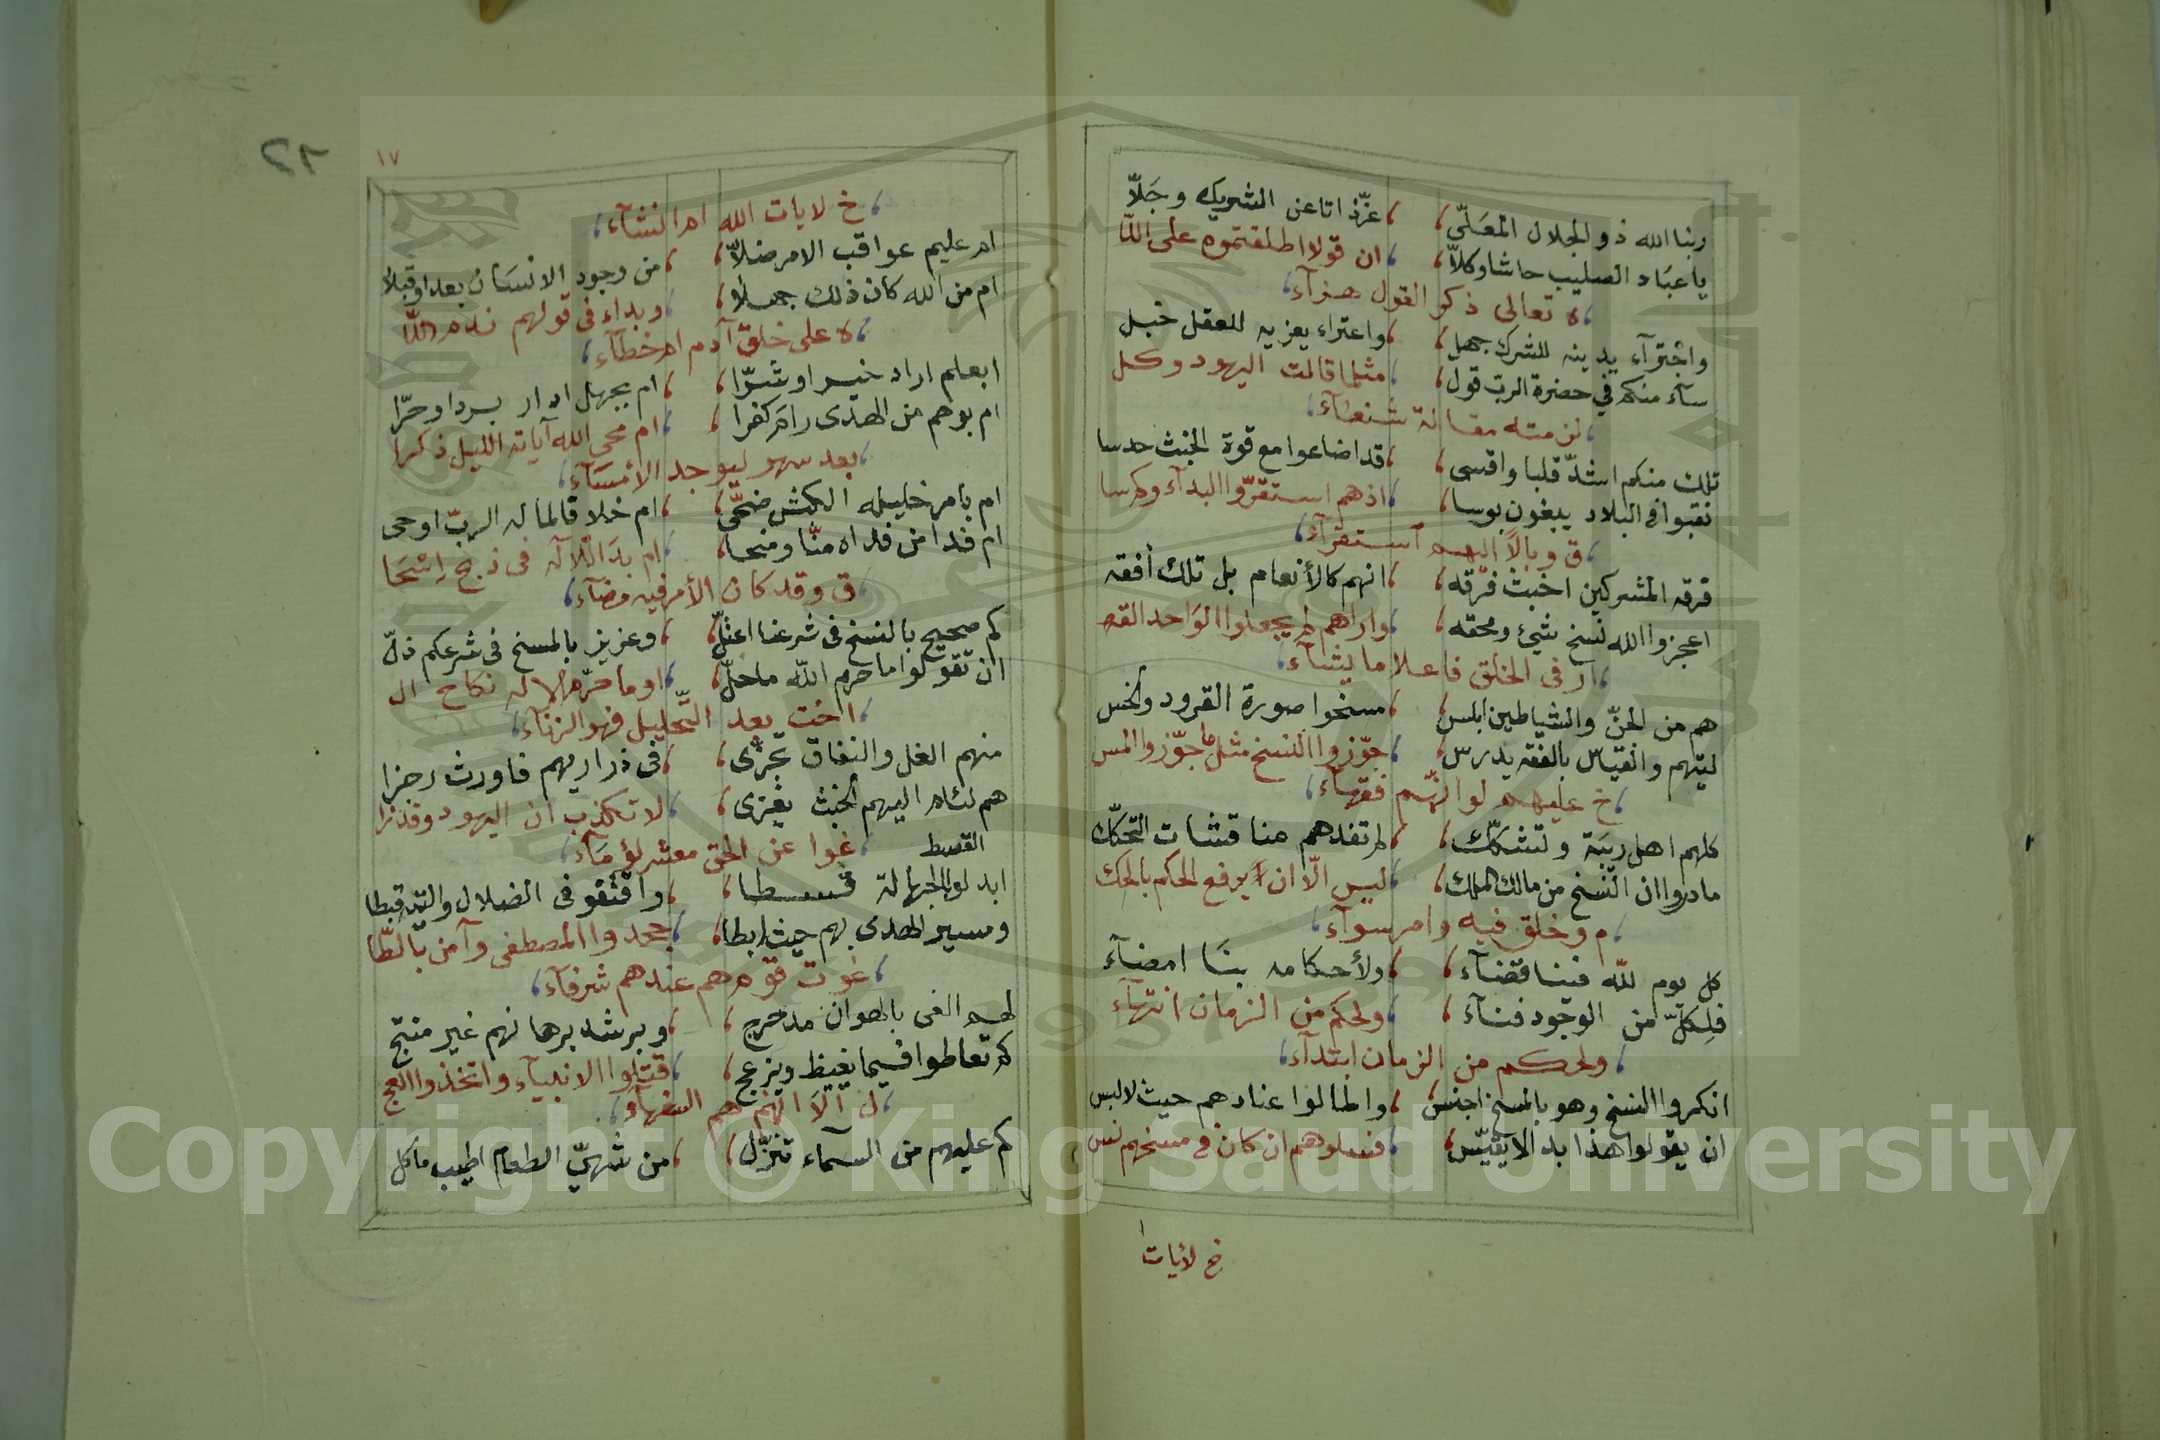 ربنا الله ذو الجلال المعلّى ، عزّ ذاتا عن الشريك وجَلّا
يا عبَاد الصليب حاشا وكلّا ، ان قولا اطلقتموه على اللا
، ه تعالى ذكر القول هزآء ،
واجترآء يدينه للشرك جهل ، واعتراء يعزيه للعقل خبل
سآء منكم في حضرة الرب قول ، مثلما قالت اليهود وكل
، لزمته مقالة شنعآء ،
تلك منكم اشدّ قلبا واقسى ، قد اضاعوا مع قوة الخبث حدسا
نقبوا في البلاد يبغون بوسا ، اذ هم استقرّوا البدآء وكم سا
، ق وبالًا اليهم استقرآء ،
فرقه المشركين اخبث فرقه ، انهم كالأنعام بل تلك أفقه
اعجزوا الله نسخ شيئ ومحقه ، واراهم لم يجعلوا الوَاحد القه
، ار فى الخلق فاعلا ما يشآء ،
هم من الجنّ والشياطين ابلس ، مسخوا صورة القرود والخس
ليتهم والقياس بالفقه يدرس ، جوّزوا النسخ مثل ما جوّزوا المس
، خ عليهم لو انّهم فقهآء ،
كلهم اهل ريبَة وتشكّك ، لم تفدهم مناقشات التحكّك
ما دروا ان النسخ من مالك الملك ، ليس الّا ان يرفع الحكم بالحك
، م وخلق فيه وامر سوآء ،
كل يوم للّه فينا قضآء ، ولأحكامه بنَا امضآء
فلِكلّ من الوجود فنآء ، ولحكم من الزمان انتهآء
، ولحكم من الزمان ابتدآء ،
انكروا النسخ وهو بالمسخ اجنس ، واطالوا عنادهم حيث لا لبس
ان يقولوا هذا بدا لا يقيّس ، فسلوهم ان كان في مسخهم نس
خ لأيات
١٧
٢٢
، خ لايات الله ام انشآء ،
ام عليم عواقب الامر ضلّا ، من وجود الانسَان بعدا وقبلا
ام من الله كان ذلك جهلا ، وبداء فى قولهم ندم اللّا
، ه على خلق آدم ام خطآء ،
ابعلم اراد خيرا وشرّا ، ام بجهل ادار بردا وحرّا
ام بوهم من الهدى رامَ كفرا ، ام محى الله آيات الليل ذكرا
، بعد سهو ليوجد الأمسَآء ،
ام بامر خليله الكبش ضحّى ، ام خلا قالما له الربّ اوحى
ام فدا من فداه منّا ومنحا ، ام بدَا للاله فى ذبح اسْحَا
، ق وقد كان الأمر فيه مضآء ،
كم صحيح بالنسخ فى شرعنا اعتلّ ، وعزيز بالمسخ فى شرعكم ذلّ
ان تقولوا ما حرم اللّه ما حلّ ، اوما حرّم الاله نكاح ال
، اخت بعد التّحليل فهو الزنآء ،
منهم الغل والنفاق تجزّى ، فى ذراريهم فاورث رجزا
هم لئام اليهم الخبث يعزى ، لا تكذب ان اليهود وقد زا
، غوا عن الحق معشر لؤمَآء ،
القسط
ابدلو بالجهالة قسطا ، واقتفو فى الضلال والتيه قبطا
ومسير الهدى بهم حيث ابطا ، جحدوا المصطفى وآمن بالطّا
، غوت قوم هم عندهم شرفآء ،
لهم الغى بالهوان مدحرج ، وبرشد برهانهم غير منتج
كم تعاطوا فيما يغيظ ويزعج ، قتلوا الانبيآء واتخذوا العج
، ل ألَا انّهم هم السفهآء ،
كم عليهم من السمآء تنزّل ، من شهيّ الطعام اطيب ماكل
Copyright © King Saud University